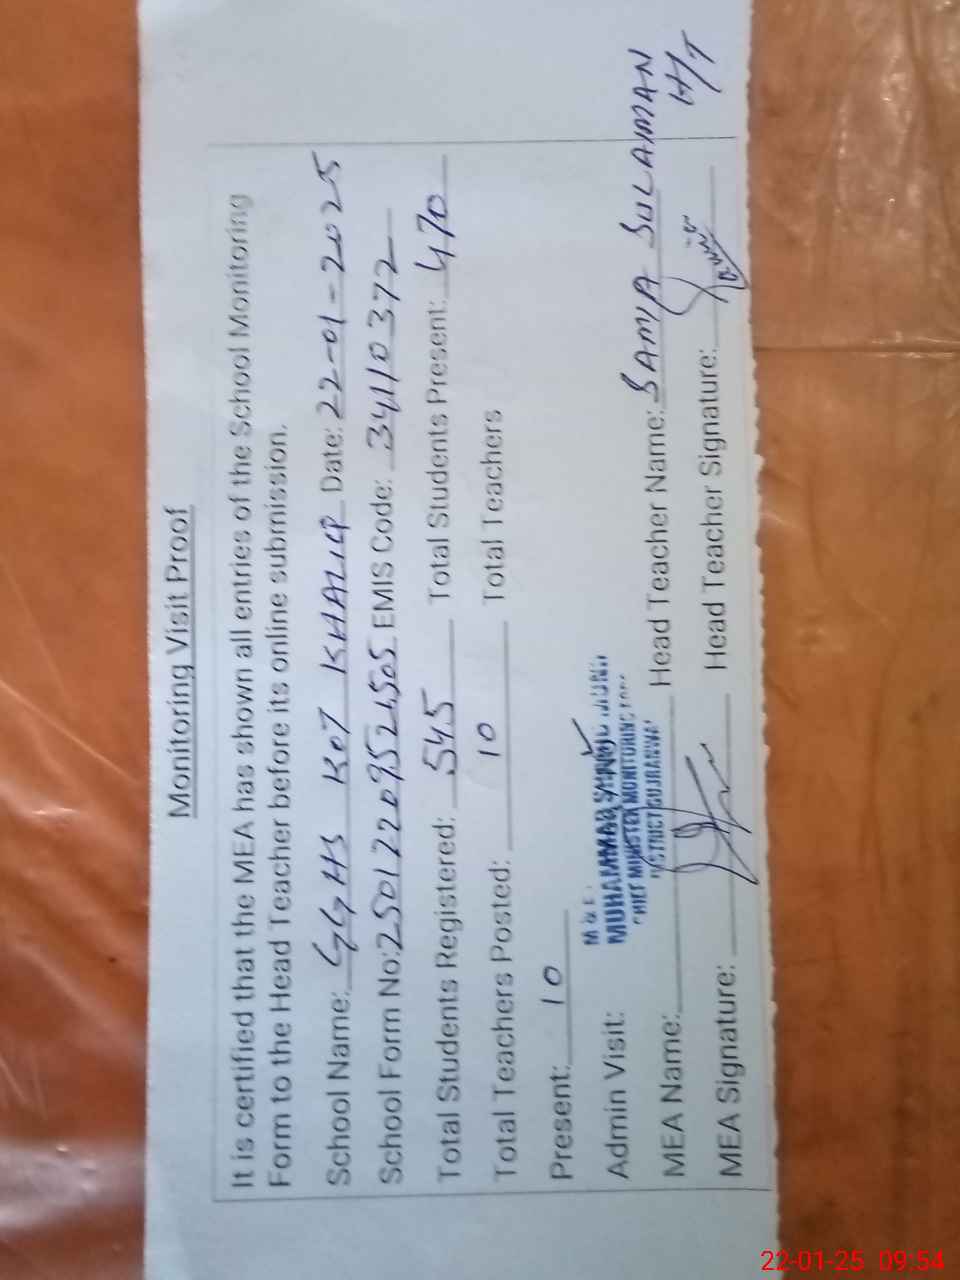 Monitoring Visit Proof
It is certified that the MEA has shown all entries of the School Monitoring
Form to the Head Teacher before its online submission.
School Name: GGHS KOT KHALIQ Date: 22-01-2025
School Form No: EMIS Code: 34110372
Total Students Registered: 545 Total Students Present: 470
Total Teachers Posted: 10 Total Teachers
Present: 10
Admin Visit: ✓
MUHAMMAD
CHIEF MINISTER MONITORING
DISTRICT GUJRANWALA
MEA Name: Head Teacher Name: SAMIA SULAIMAN
H/T
MEA Signature: Head Teacher Signature:
22-01-25 09:54